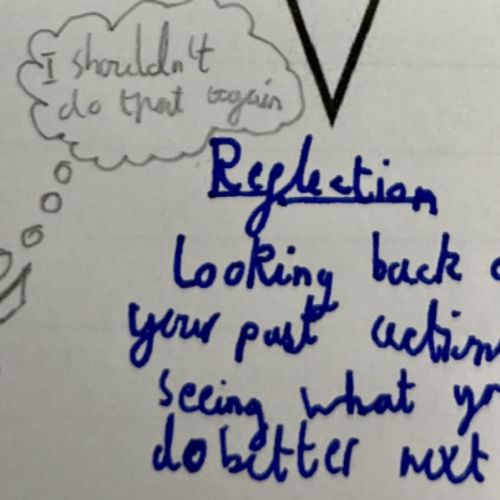 I shouldn't
do that again
Reflection
Looking back
your past action
seeing what yo
do better next